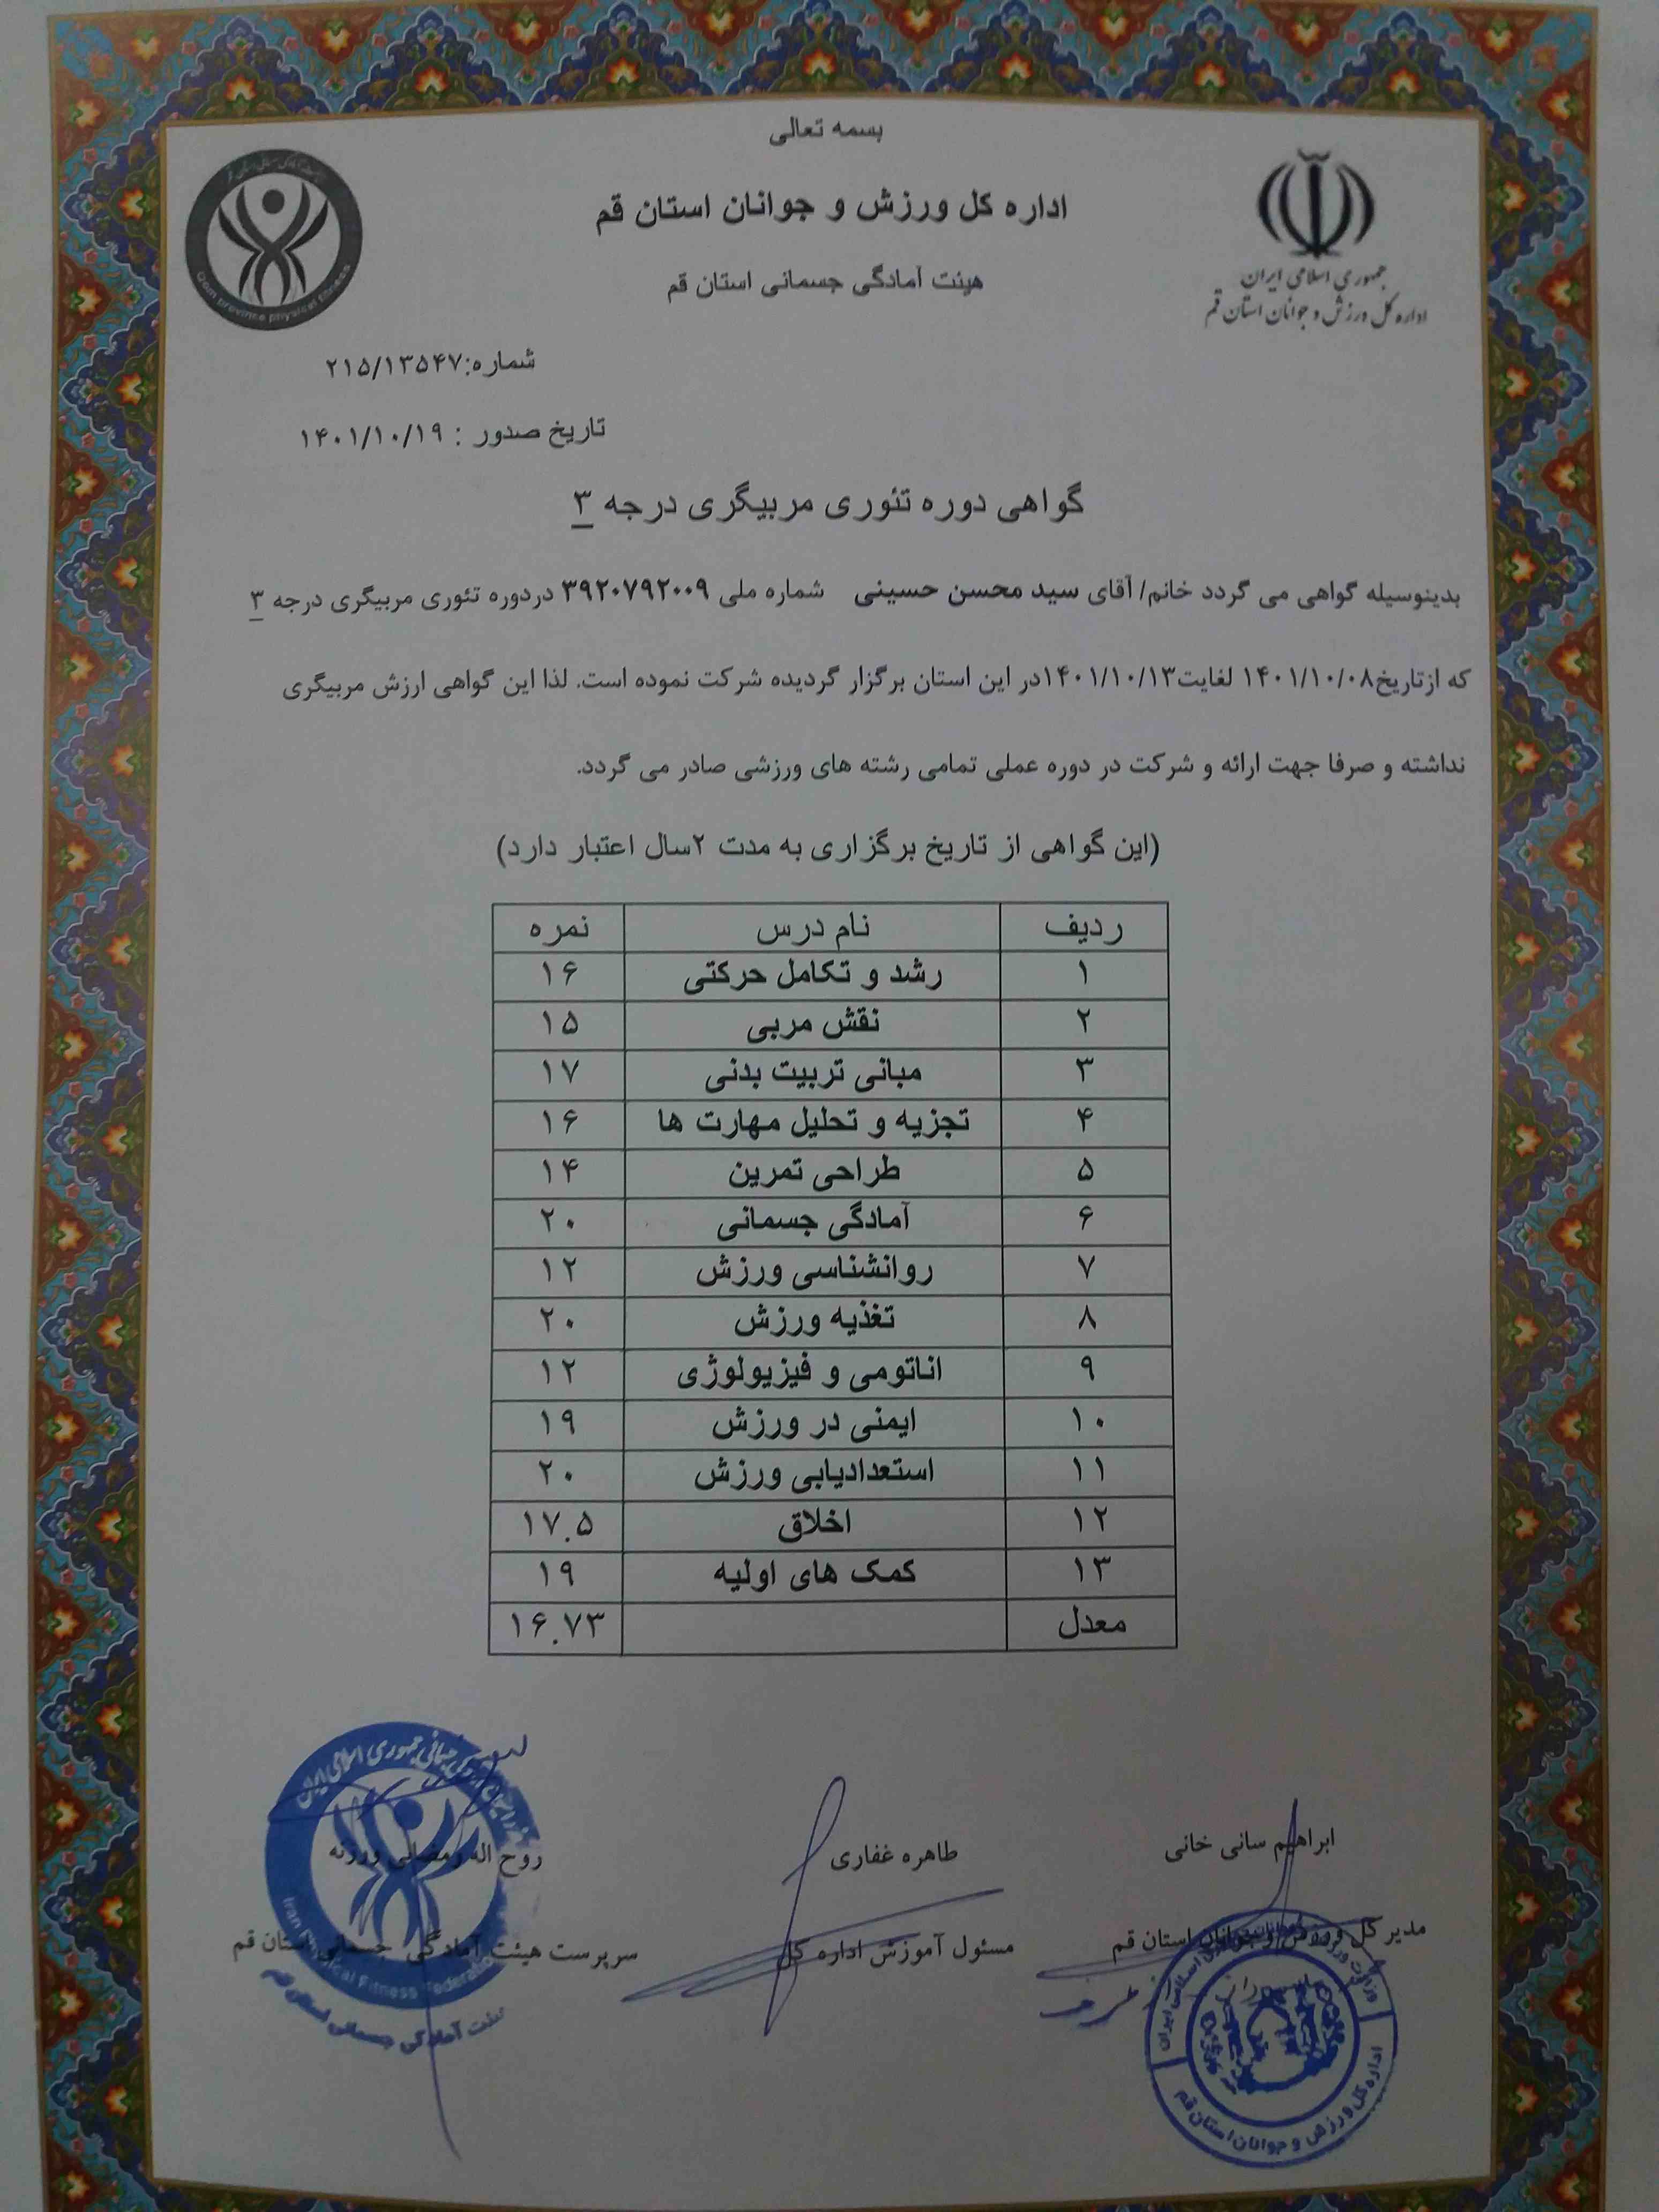 بسمه تعالی
اداره کل ورزش و جوانان استان قم
هیئت آمادگی جسمانی استان قم
جمهوری اسلامی ایران
اداره کل ورزش و جوانان استان قم
Qom province physical fitness
شماره:۲۱۵/۱۳۵۴۷
تاریخ صدور : ۱۴۰۱/۱۰/۱۹
گواهی دوره تئوری مربیگری درجه ۳
بدینوسیله گواهی می گردد خانم/ آقای سید محسن حسینی شماره ملی ۳۹۲۰۷۹۲۰۰۹ دردوره تئوری مربیگری درجه ۳
که ازتاریخ۱۴۰۱/۱۰/۰۸ لغایت۱۴۰۱/۱۰/۱۳در این استان برگزار گردیده شرکت نموده است. لذا این گواهی ارزش مربیگری
نداشته و صرفا جهت ارائه و شرکت در دوره عملی تمامی رشته های ورزشی صادر می گردد.
(این گواهی از تاریخ برگزاری به مدت ۲سال اعتبار دارد)
ردیف نام درس نمره
۱ رشد و تکامل حرکتی ۱۶
۲ نقش مربی ۱۵
۳ مبانی تربیت بدنی ۱۷
۴ تجزیه و تحلیل مهارت ها ۱۶
۵ طراحی تمرین ۱۴
۶ آمادگی جسمانی ۲۰
۷ روانشناسی ورزش ۱۲
۸ تغذیه ورزش ۲۰
۹ اناتومی و فیزیولوژی ۱۲
۱۰ ایمنی در ورزش ۱۹
۱۱ استعدادیابی ورزش ۲۰
۱۲ اخلاق ۱۷.۵
۱۳ کمک های اولیه ۱۹
معدل ۱۶.۷۳
ابراهیم سانی خانی
مدیر کل ورزش و جوانان استان قم
طاهره غفاری
مسئول آموزش اداره کل
روح اله رمضانی ورزنه
سرپرست هیئت آمادگی جسمانی استان قم
هیئت آمادگی جسمانی استان قم
اداره کل ورزش و جوانان استان قم